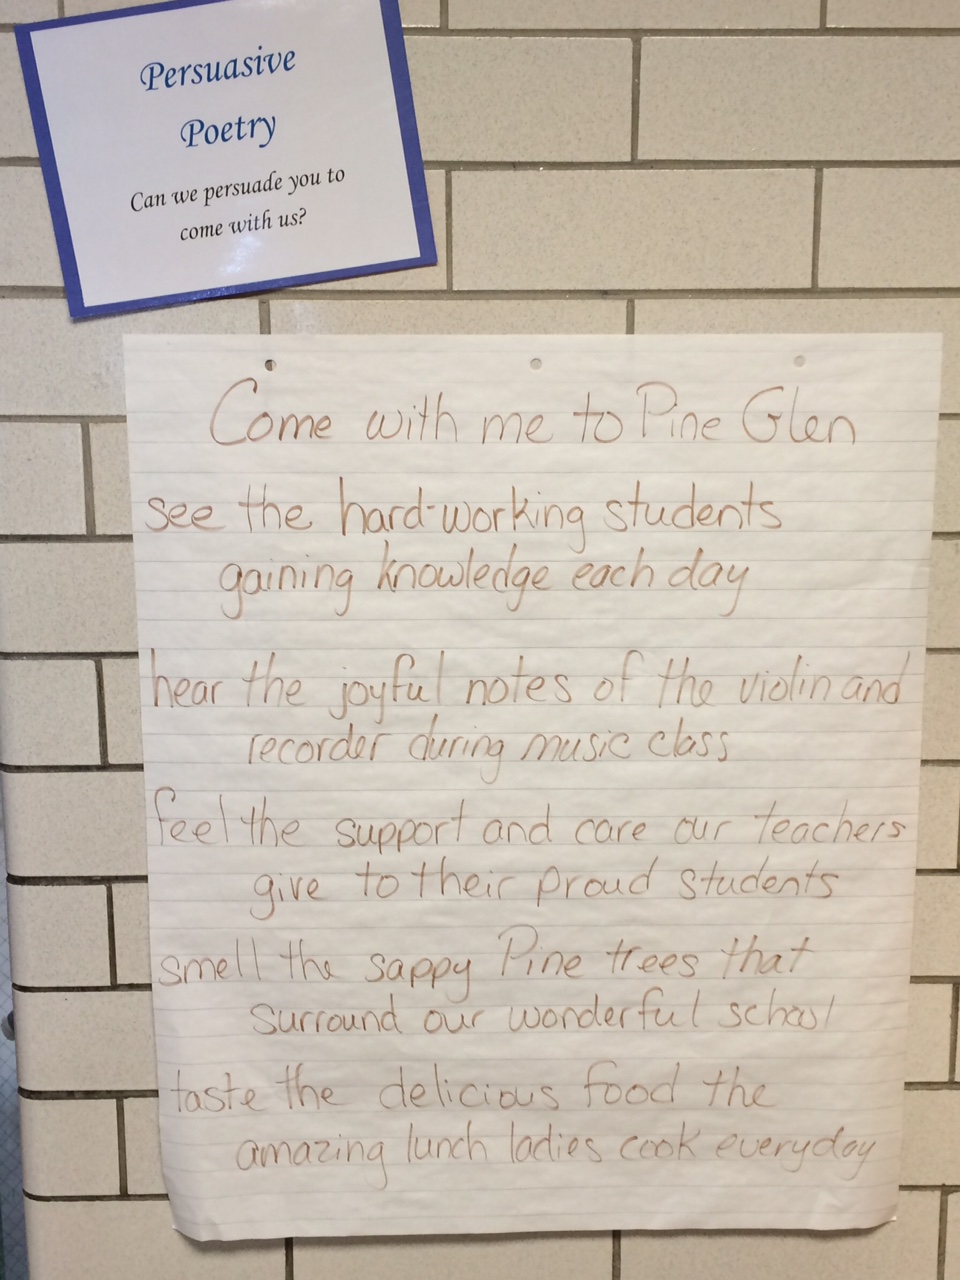 Persuasive
Poetry
Can we persuade you to
come with us?
Come with me to Pine Glen
see the hard-working students
gaining knowledge each day
hear the joyful notes of the violin and
recorder during music class
feel the support and care our teachers
give to their proud students
smell the sappy Pine trees that
surround our wonderful school
taste the delicious food the
amazing lunch ladies cook everyday